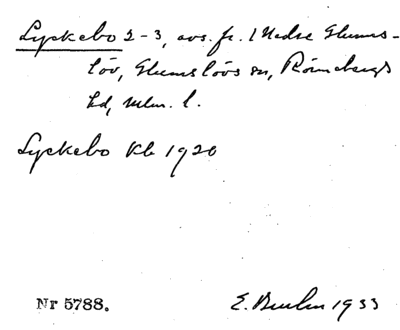 Lyckebo 2-3, avs. fr. 1 Nedre Glums-
löv, Glumslövs sn, Rönnebergs
hd, Mlm. l.
Lyckebo Kb 1920
Nr 5788. E. 1933